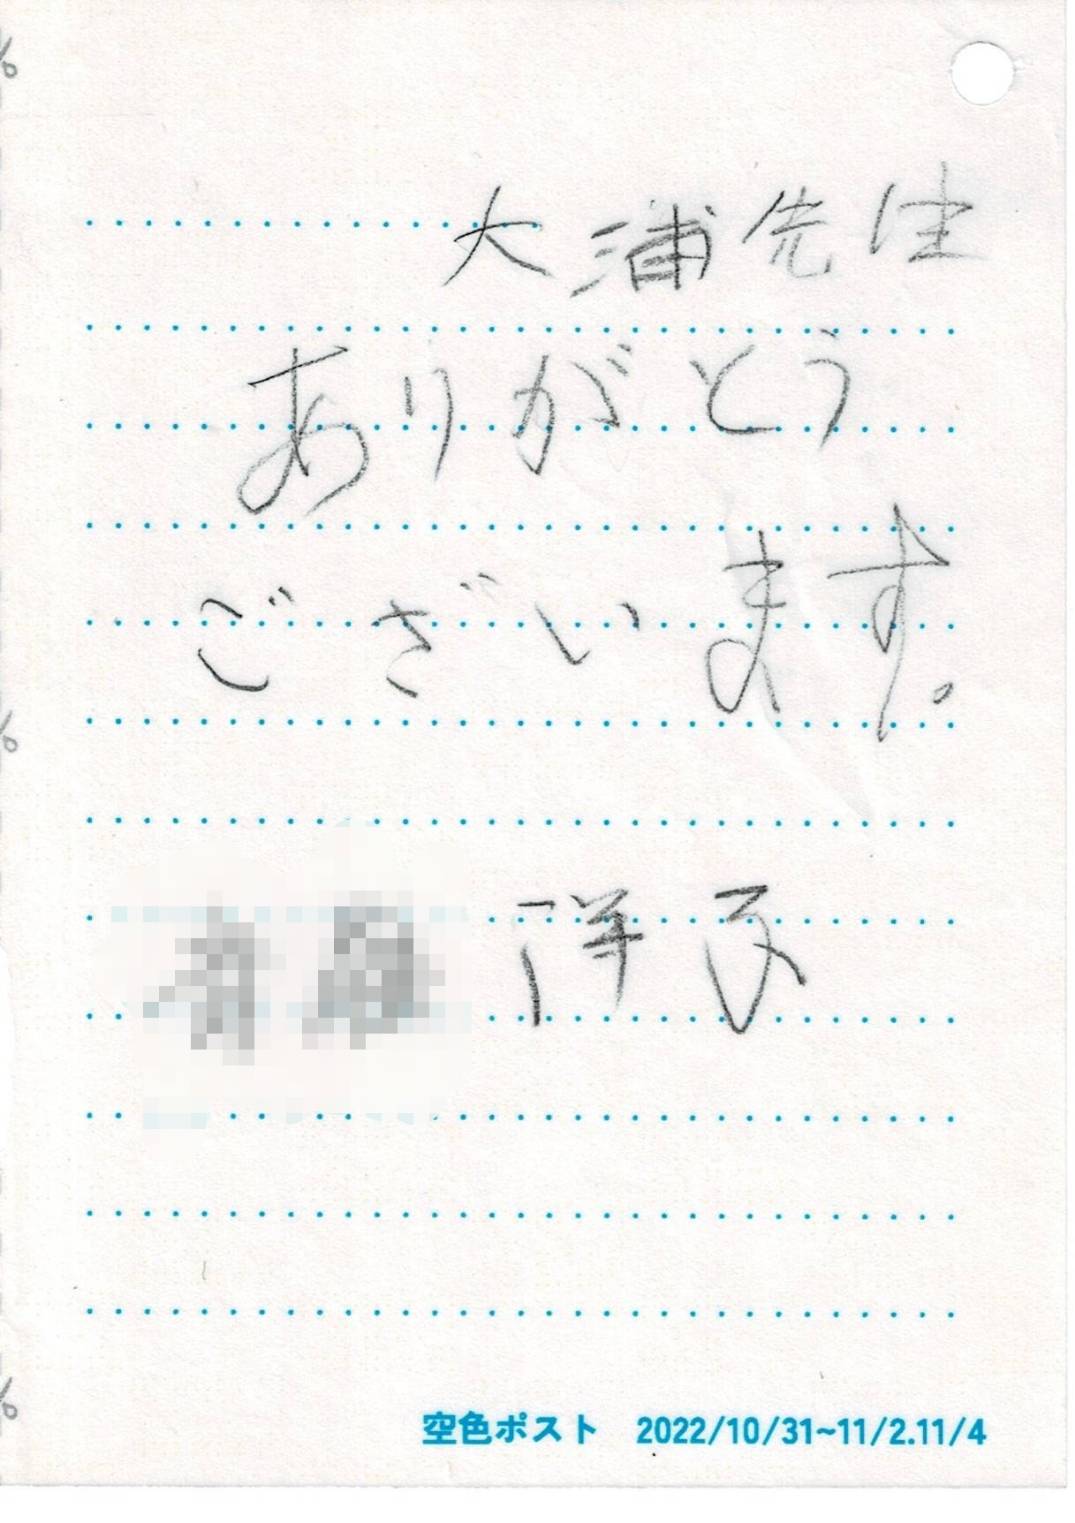 大浦先生
ありがとう
ございます。
洋子
空色ポスト 2022/10/31~11/2.11/4